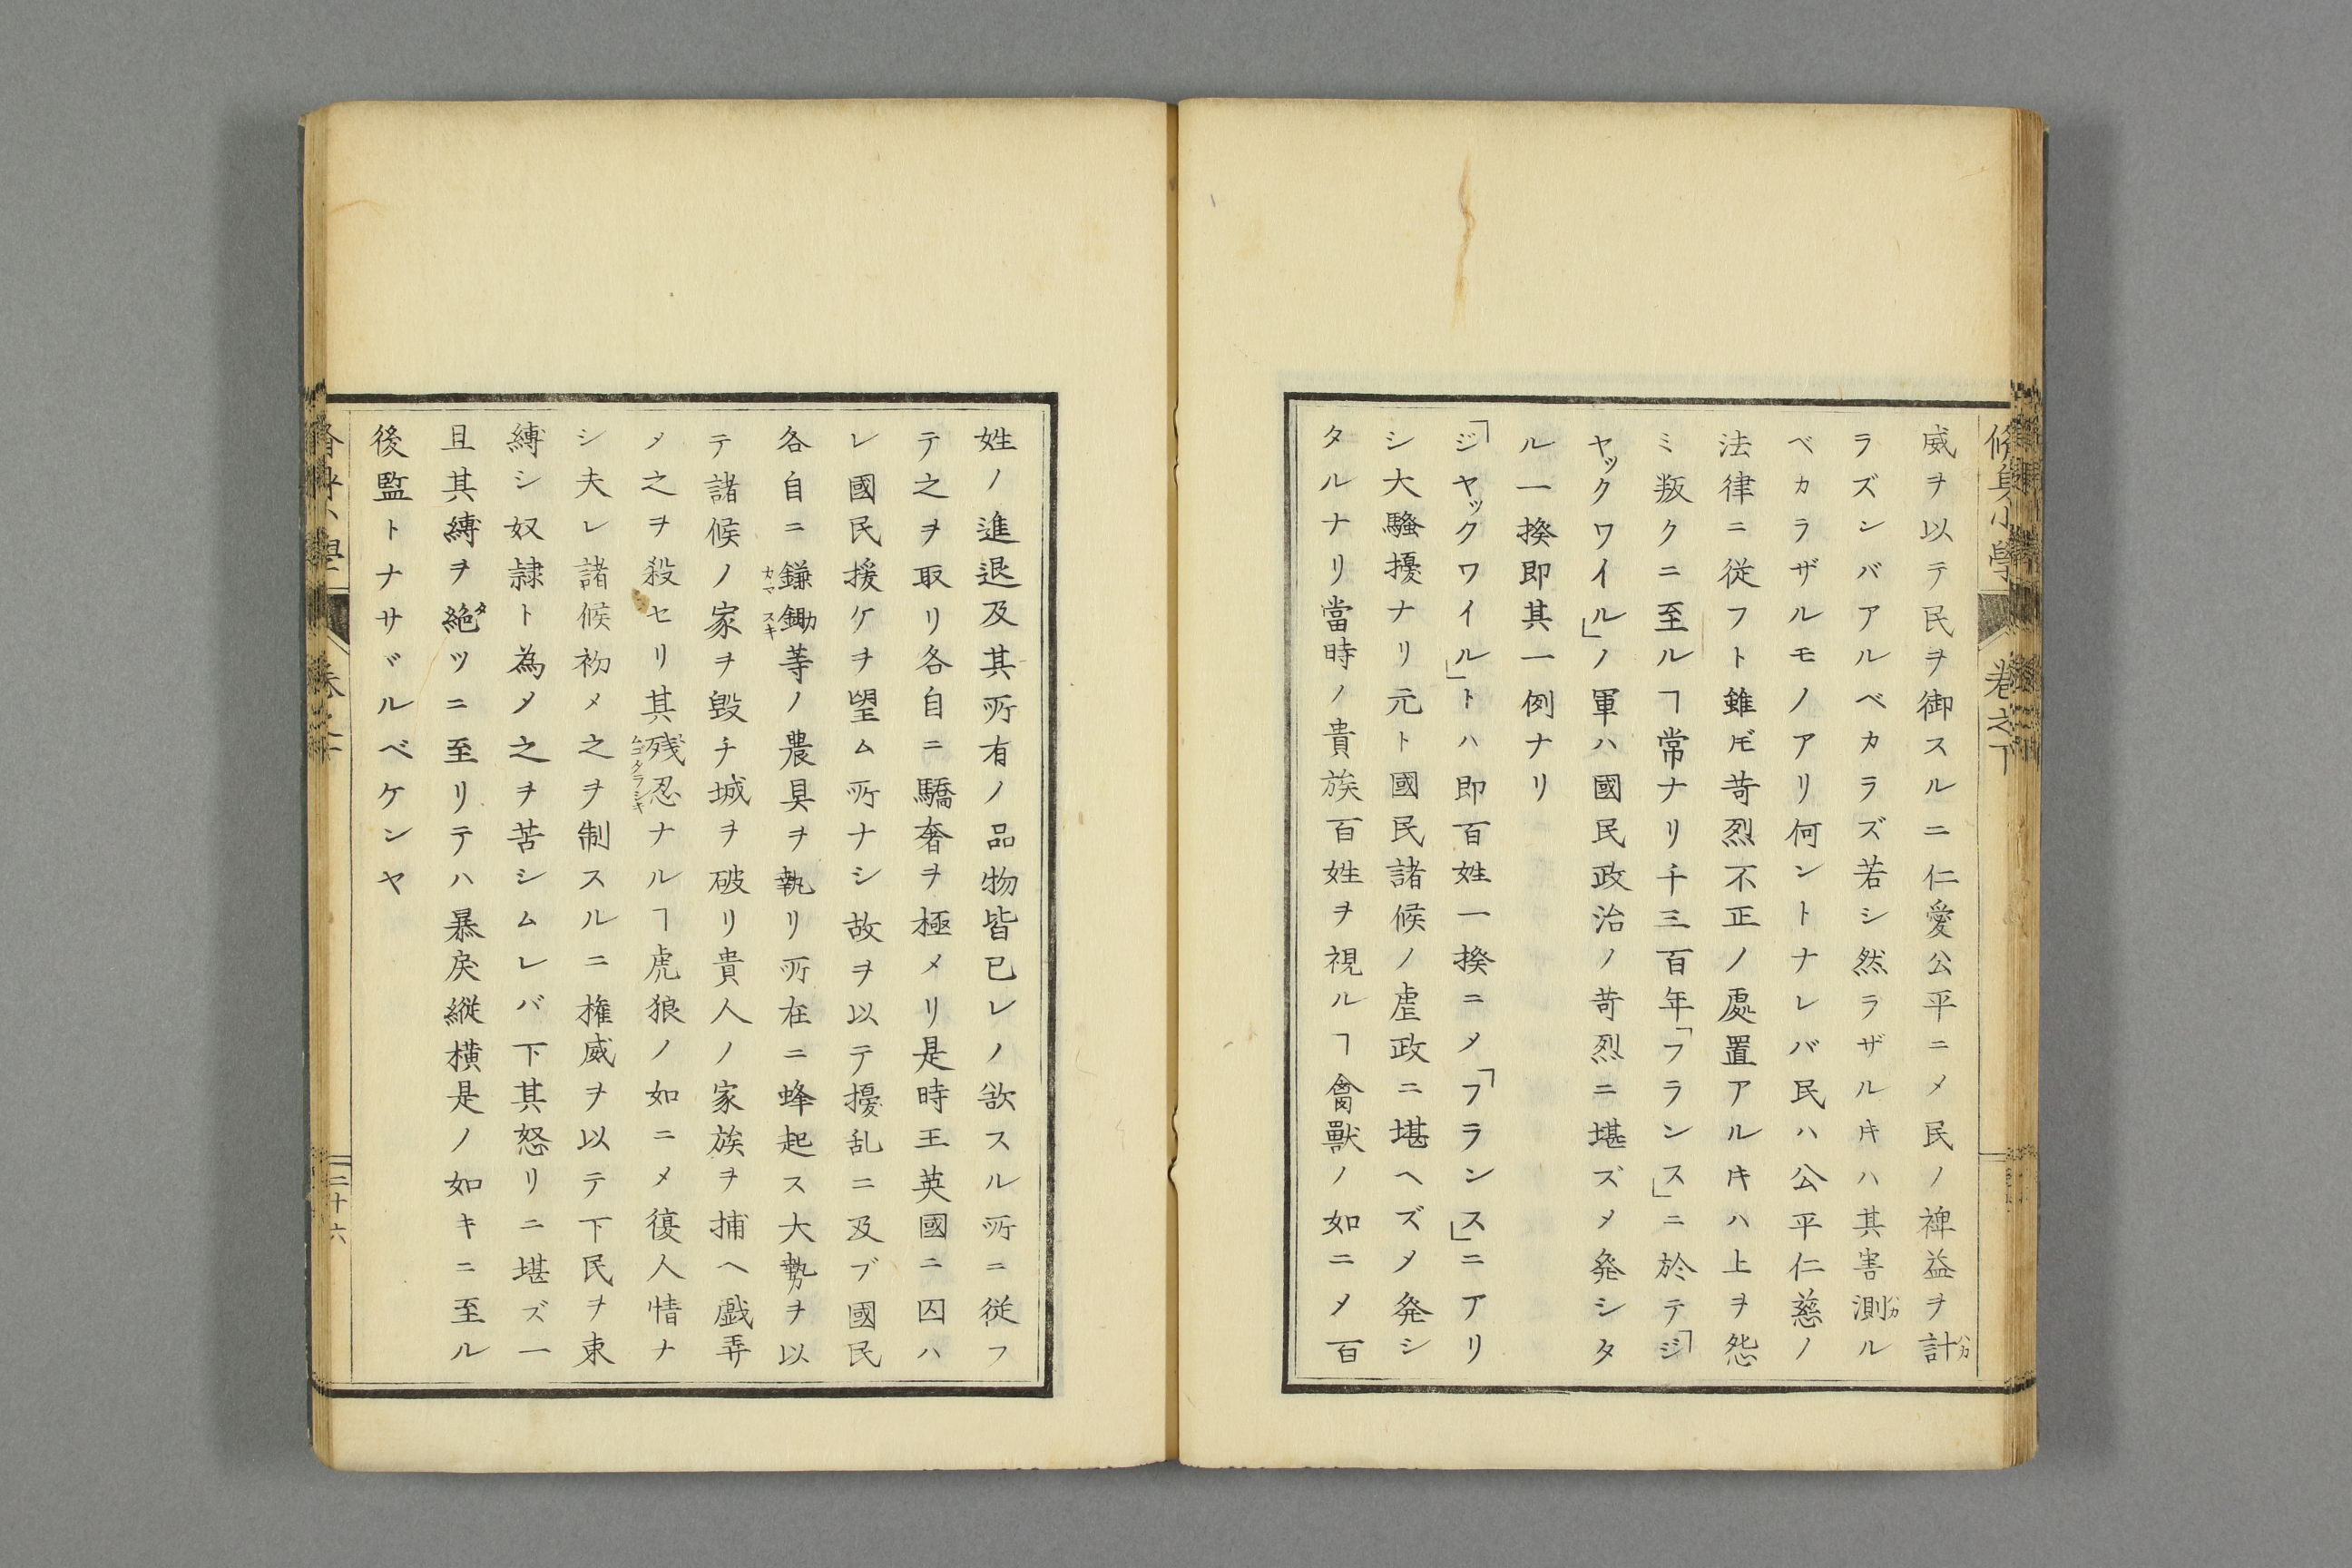 威ヲ以テ民ヲ御スルニ仁愛公平ニメ民ノ裨益ヲ計
ラズンバアルベカラズ若シ然ラザルキハ其害測ル
ベカラザルモノアリ何ントナレバ民ハ公平仁慈ノ
法律ニ従フト雖𪜈苛烈不正ノ處置アルキハ上ヲ怨
ミ叛クニ至ルヿ常ナリ千三百年「フランス」ニ於テ「ジ
ヤックワイル」ノ軍ハ國民政治ノ苛烈ニ堪ズメ発シタ
ル一揆即其一例ナリ
「ジヤックワイル」トハ即百姓一揆ニメ「フランス」ニアリ
シ大騷擾ナリ元ト國民諸候ノ虐政ニ堪ヘズメ発シ
タルナリ當時ノ貴族百姓ヲ視ルヿ禽獸ノ如ニメ百
姓ノ進退及其所有ノ品物皆已レノ欲スル所ニ従フ
テ之ヲ取リ各自ニ驕奢ヲ極メリ是時王英國ニ囚ハ
レ國民援ケヲ望ム所ナシ故ヲ以テ擾乱ニ及ブ國民
各自ニ鎌鋤等ノ農具ヲ執リ所在ニ蜂起ス大勢ヲ以
テ諸候ノ家ヲ毀チ城ヲ破リ貴人ノ家族ヲ捕ヘ戯弄
メ之ヲ殺セリ其残忍ナルヿ虎狼ノ如ニメ復人情ナ
シ夫レ諸候初メ之ヲ制スルニ権威ヲ以テ下民ヲ束
縛シ奴隷ト為メ之ヲ苦シムレバ下其怒リニ堪ズ一
旦其縛ヲ絶ツニ至リテハ暴戻縦横是ノ如キニ至ル
後監トナサヾルベケンヤ
二十六